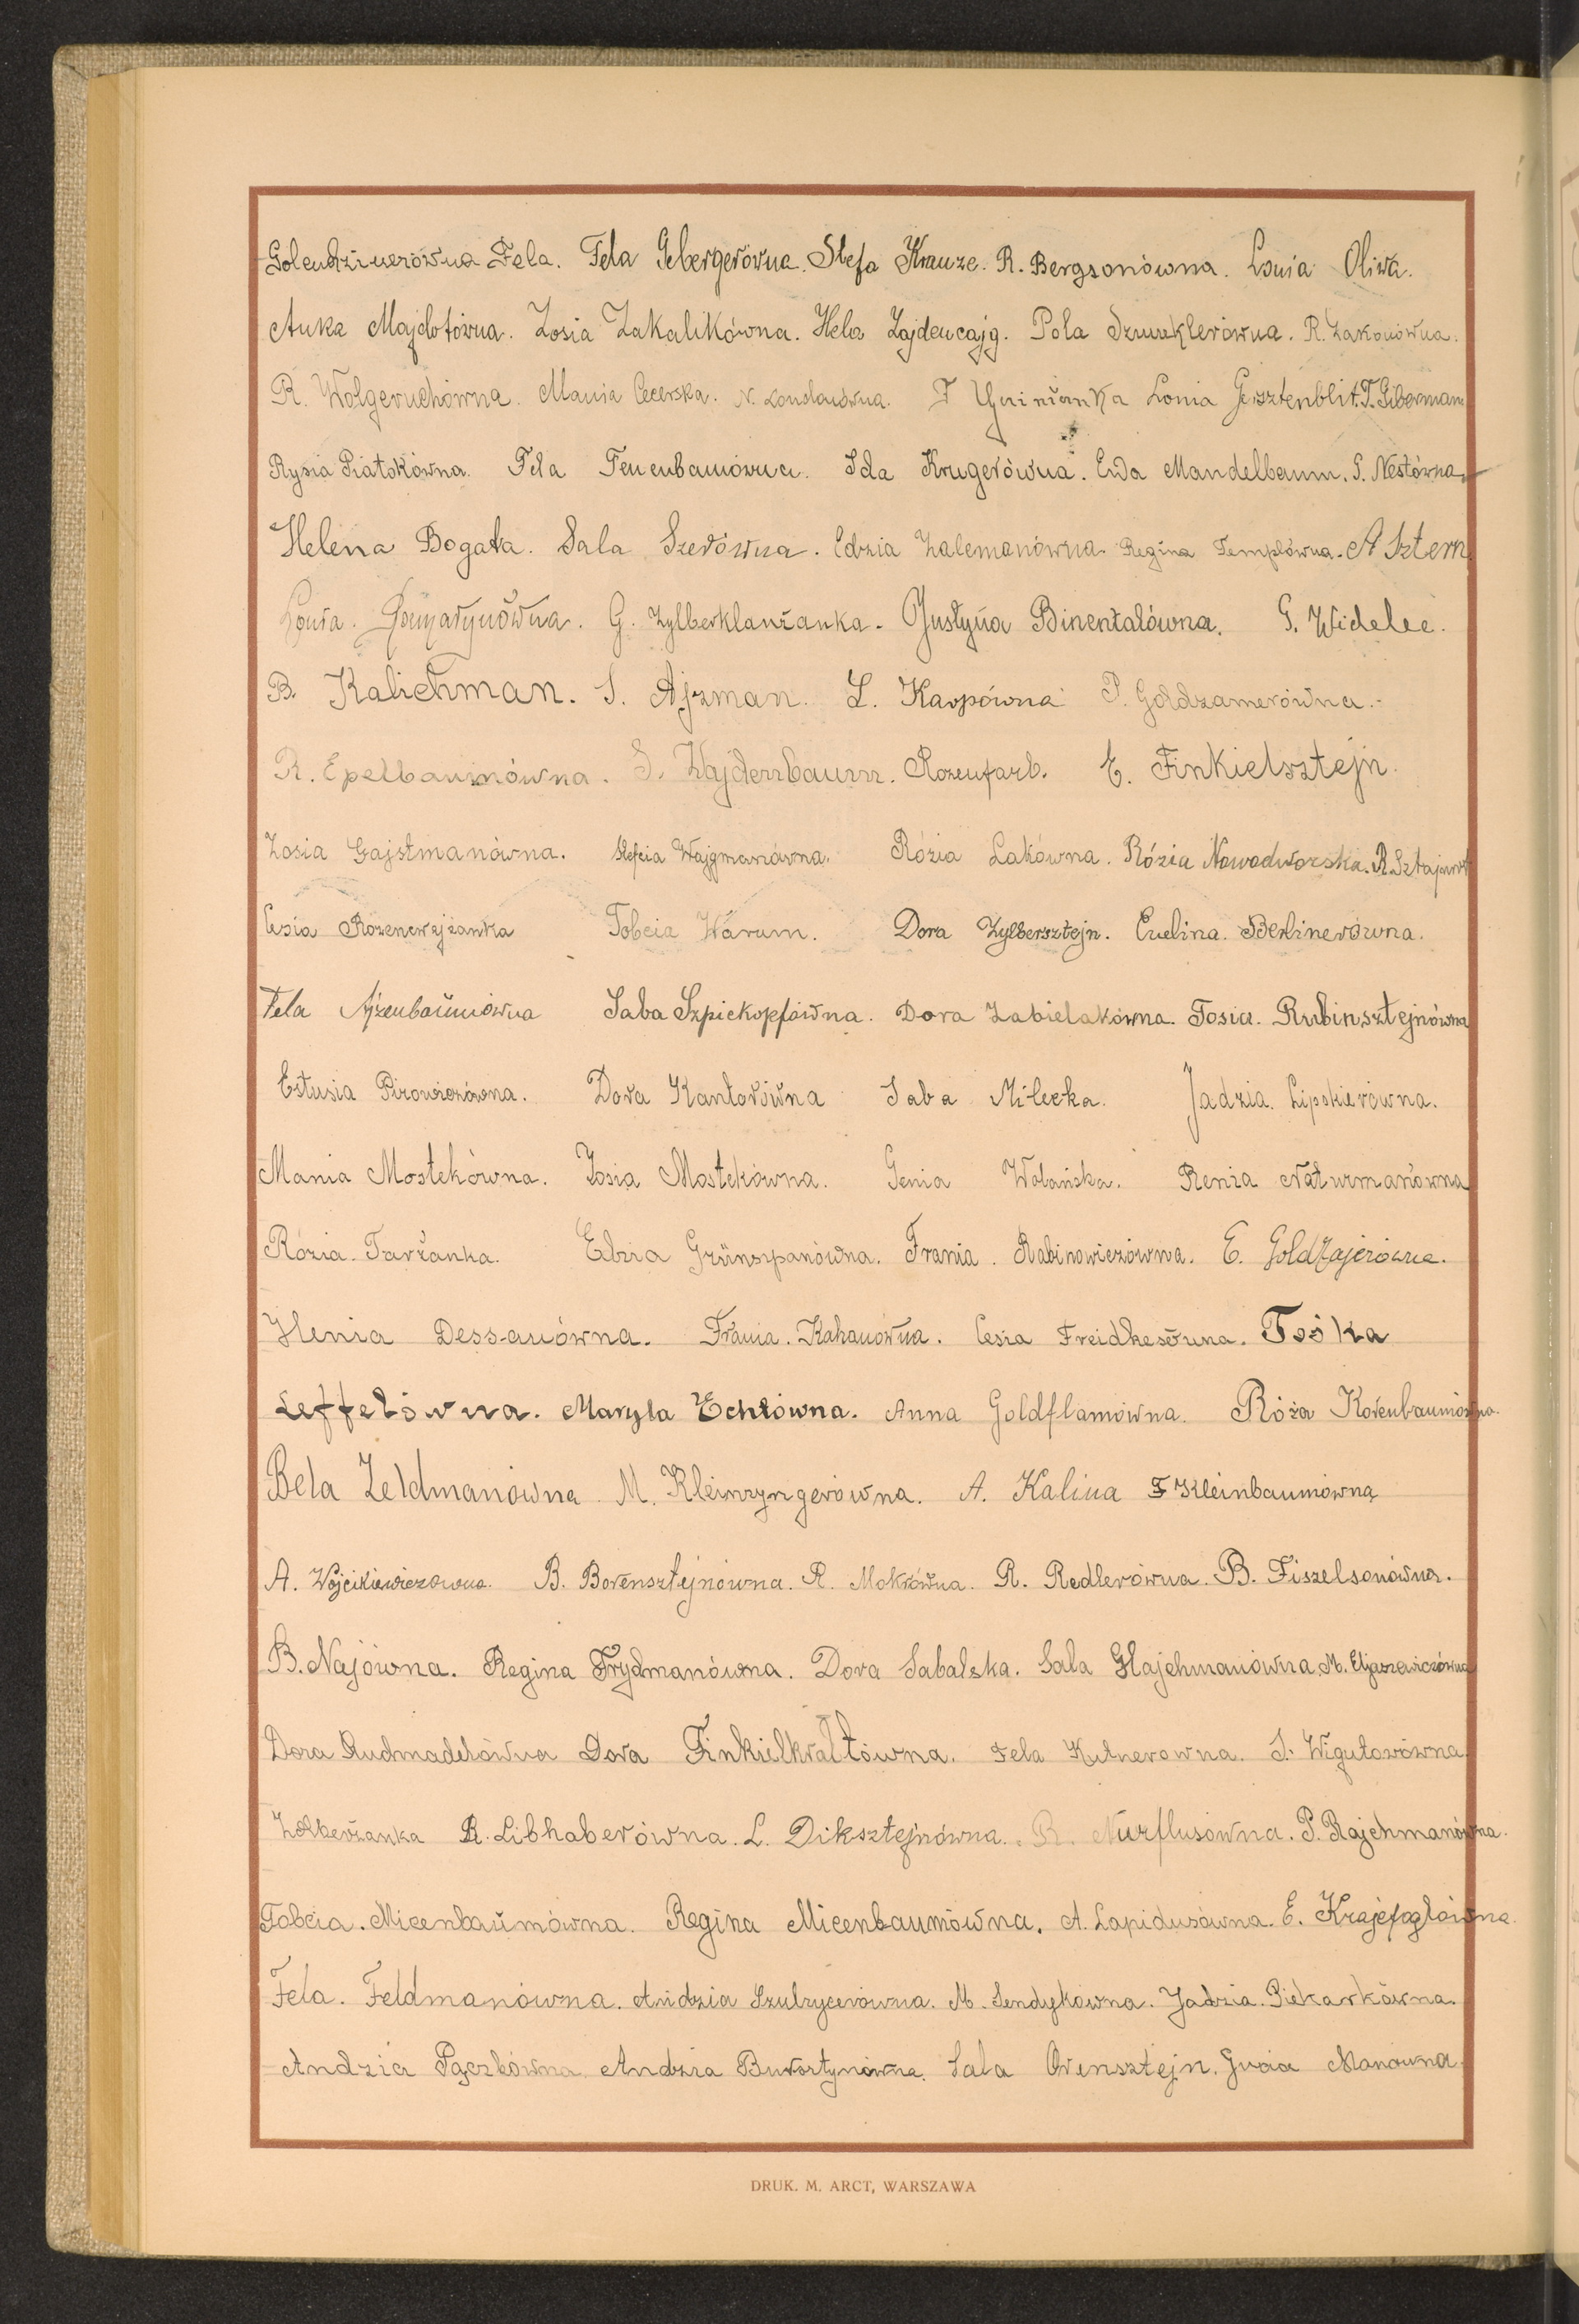 Golendzinerówna Fela. Fela Gebergerówna. Stefa Krauze. R. Bergsonówna. Lonia Oliwa.
Anka Majdotówna. Zosia Zakalikówna. Hela Zajdencajg. Pola Szmuklerówna. R. Zakonówna.
R. Wolgeruchówna. Mania Cecerska. N. Londonówna. F Lonia Gersztenblit. T. Giberman
Rysia Piatokówna. Fela Tenenbaumówna. Ida Krugerówna. Ewa Mandelbaum. S. Nestówna
Helena Bogata. Sala Szerówna. Edzia Zalemanówna. Regina Templówna. A Sztern
Lonia. G. Zylberklanżanka. Justyna Binentalówna. G. Widelec.
B. Kalichman. S. Ajzman. L. Karpówna P. Goldzamerówna.
R. Epelbaumówna. S. Wajdenbaum. Rozenfarb. E. Finkielsztejn.
Zosia Gajstmanówna. Stefcia Wajgmanówna. Rózia Lakówna. Rózia Nowodworska. R. Sztajnwurt
Cesia Rozencwejżanka Tobcia Warum. Dora Zylbersztejn. Ewelina. Berlinerówna.
Fela Ajzenbaumówna Saba Szpickopfówna. Dora Zabielakówna. Tosia. Rubinsztejnówna
Estusia Pirowiczówna. Dora Kantorówna Saba Milecka. Jadzia. Lipskierówna.
Mania Mostekówna. Zosia Mostekówna. Genia Wolańska. Renia Naturmanówna
Rózia Tarżanka. Edzia Grünszpanówna. Frania. Rabinowiczówna. E. Goldzajerówna.
Henia Dessauówna. Frania. Kahanówna. Cesia Freidkesówna. Tośka
Leffelówna. Maryla Echtówna. Anna Goldflamówna. Róża Korenbaumówna.
Bela Zeldmanówna M. Kleinzyngerówna. A. Kalina F Kleinbaumówna
A. Wójcikiewiczówna. B. Borensztejnówna. R. Mokrówna. R. Redlerówna. B. Fiszelsonówna.
B. Najówna. Regina Frydmanówna. Dora Sabalska. Sala Hajchmanówna. M. Eljaszewiczówna
Dora Rudmadelówna Dora Finkielkrałtówna. Fela Kutnerowna. S. Wigutowówna.
Zolberżanka R. Libhaberówna. L. Diksztejnówna. R. Nurflusówna. P. Rajchmanówna.
Tobcia. Micenbaumówna. Regina Micenbaumówna. A. Lapidusówna. E. Krajefogłówna.
Fela. Feldmanówna. Andzia Szulrycerówna. M. Sendykówna. Jadzia. Piekarkówna.
Andzia Pączkówna. Andzia Bursztynówna. Sala Orensztejn. Gucia Manówna
DRUK. M. ARCT, WARSZAWA